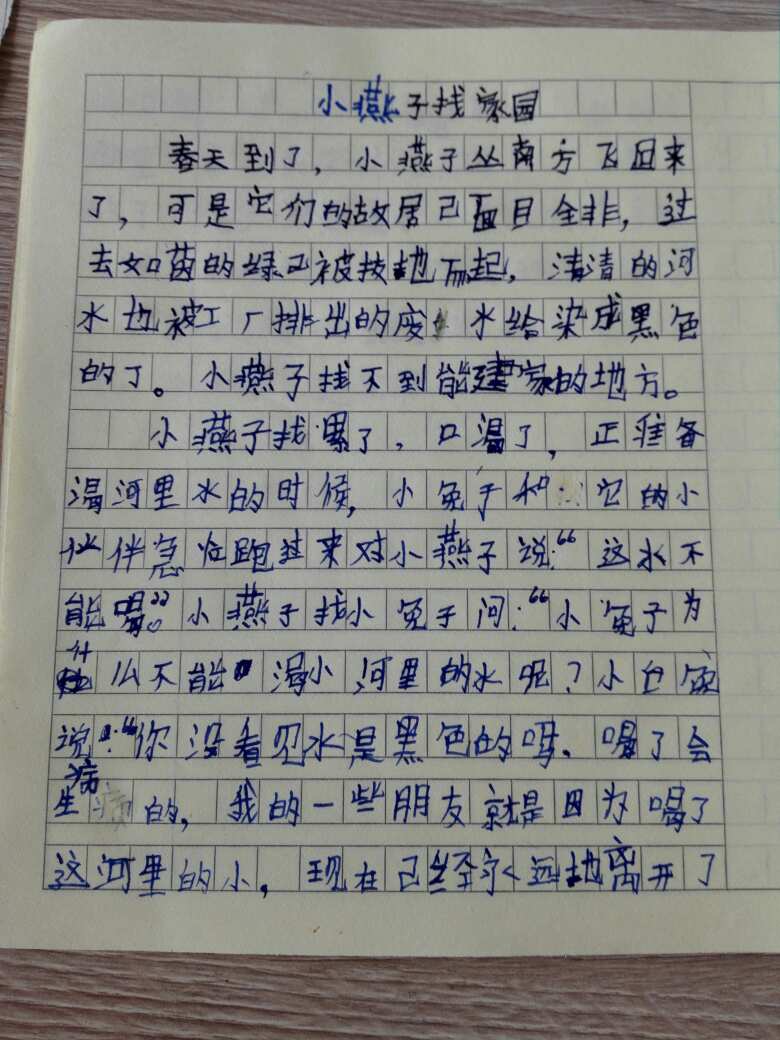 小燕子找家园
春天到了，小燕子丛南方飞回来
了，可是它们的故居己面目全非，过
去如茵的绿己被拔地而起，清清的河
水也被工厂排出的废水给染成黑色
的了。小燕子找不到能建家的地方。
小燕子找累了，口渴了，正准备
渴河里水的时候，小兔子和它的小
伙伴急忙跑过来对小燕子说：“这水不
能喝。”小燕子找小兔子问：“小兔子为
什么不能渴小河里的水呢？小白
说：“你没看见水是黑色的吗．喝了会
生病的，我的一些朋友就是因为喝了
这河里的小，现在己经远地离开了